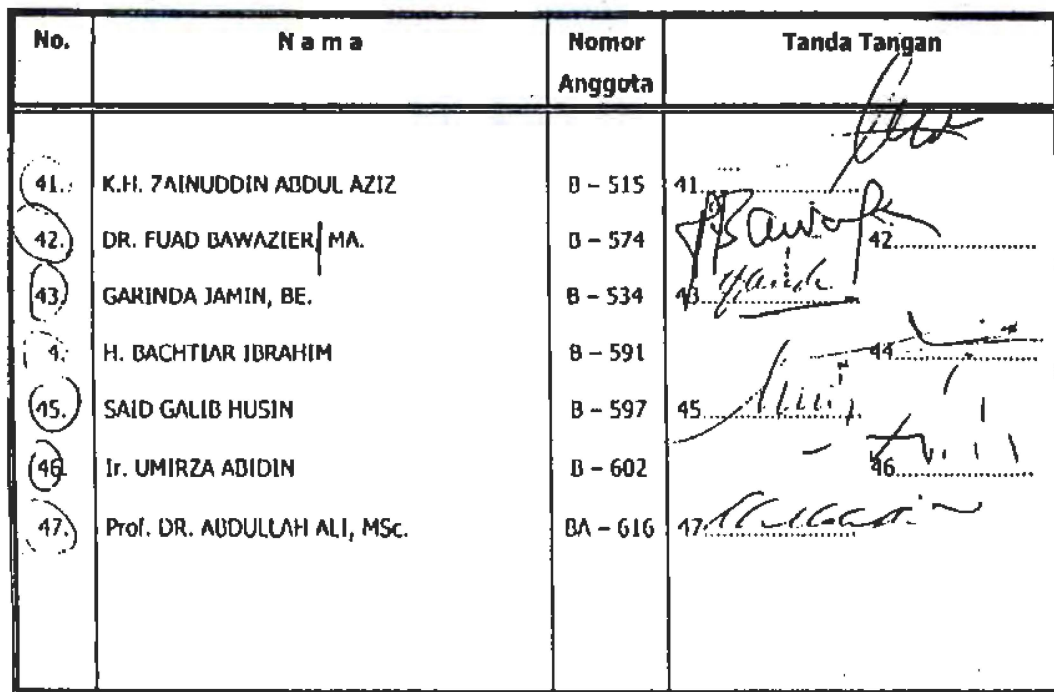 No. Nama Nomor Anggota Tanda Tangan
41. K.H. ZAINUDDIN ABDUL AZIZ B – 515 41
42. DR. FUAD BAWAZIER, MA. B – 574 42
43. GARINDA JAMIN, BE. B – 534 43
4. H. BACHTIAR IBRAHIM B – 591 44
45. SAID GALIB HUSIN B – 597 45
46. Ir. UMIRZA ABIDIN B – 602 46
47. Prof. DR. ABDULLAH ALI, MSc. BA – 616 47